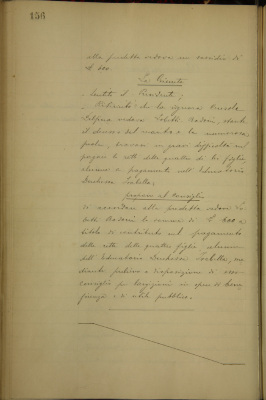 156
alla predetta vedova un sussidio di
£ 400.
La Giunta
Sentito il Presidente;
Ritenuto che la signora
vedova Badoni, stante
il decesso del marito e la numerosa
prole, trovasi in gravi difficoltà nel
pagare le rette delle quattro di lei figlie,
alunne a pagamento nell'Educatorio
Duchessa Isabella;
propone al Consiglio
di accordare alla predetta vedova
Badoni la somma di £ 400 a
titolo di contributo nel pagamento
delle rette delle quattro figlie, alunne
dell'Educatorio Duchessa Isabella, me
diante prelievo a disposizione di
Consiglio per in opere di bene
ficenza e di utile pubblico.